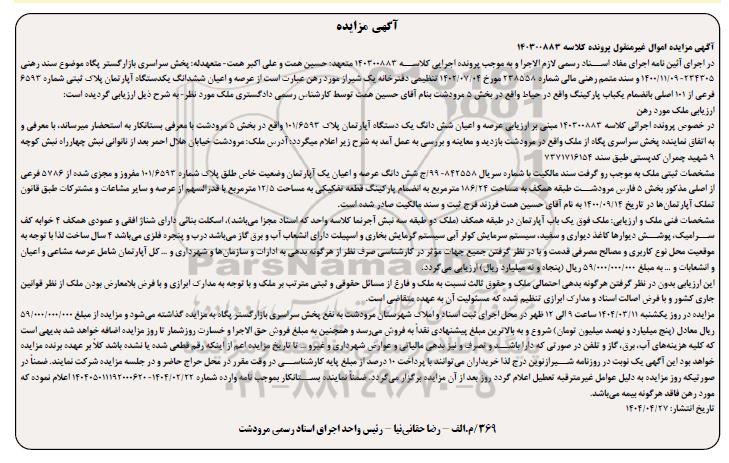 آگهی مزایده
آگهی مزایده اموال غیرمنقول پرونده کلاسه ۱۴۰۳۰۰۸۸۳
در اجرای آئین نامه اجرای مفاد اسناد رسمی لازم الاجرا و به موجب پرونده اجرایی کلاسه ۱۴۰۳۰۰۸۸۳ متعهد: حسین همت و علی اکبر همت- متعهدله: پخش سراسری بازارگستر پگاه موضوع سند رهنی
۲۳۴۳۰۵-۱۴۰۰/۱۱/۰۹ و سند متمم رهنی مالی شماره ۲۳۸۵۵۸ مورخ ۱۴۰۲/۰۷/۰۴ تنظیمی دفترخانه یک شیراز مورد رهن عبارت است از عرصه و اعیان ششدانگ یکدستگاه آپارتمان پلاک ثبتی شماره ۶۵۹۳
فرعی از ۱۰۱ اصلی بانضمام یکباب پارکینگ واقع در حیاط واقع در بخش ۵ مرودشت بنام آقای حسین همت توسط کارشناس رسمی دادگستری ملک مورد نظر- به شرح ذیل ارزیابی گردیده است:
ارزیابی ملک مورد رهن
در خصوص پرونده اجرائی کلاسه ۱۴۰۳۰۰۸۸۳ مبنی بر ارزیابی عرصه و اعیان شش دانگ یک دستگاه آپارتمان پلاک ۱۰۱/۶۵۹۳ واقع در بخش ۵ مرودشت با معرفی بستانکار به استحضار میرساند، با معرفی و
به اتفاق نماینده پخش سراسری پگاه از ملک واقع در مرودشت بازدید و معاینه و بررسی به عمل آمد به شرح زیر اعلام میگردد: آدرس ملک: مرودشت خیابان هلال احمر بعد از نانوایی نبش چهارراه نبش کوچه
۹ شهید چمران کدپستی طبق سند ۷۳۷۱۷۱۶۱۵۴
مشخصات ثبتی ملک به موجب رو گرفت سند مالکیت با شماره سریال ۸۴۲۵۵۸-ج/۹۹ شش دانگ عرصه و اعیان یک آپارتمان وضعیت خاص طلق پلاک شماره ۱۰۱/۶۵۹۳ مفروز و مجزی شده از ۵۷۸۶ فرعی
از اصلی مذکور بخش ۵ فارس مرودشت طبقه همکف به مساحت ۱۸۶/۲۴ مترمربع به انضمام پارکینگ قطعه تفکیکی به مساحت ۱۲/۵ مترمربع با قدرالسهم از عرصه و سایر مشاعات و مشترکات طبق قانون
تملک آپارتمان‌ها در تاریخ ۱۴۰۰/۰۹/۱۴ به نام آقای حسین همت فرزند فرج ثبت و سند مالکیت صادر شده است.
مشخصات فنی ملک و ارزیابی: ملک فوق یک باب آپارتمان در طبقه همکف (ملک دو طبقه سه نبش آجرنما کلاسه واحد که اسناد مجزا می‌باشد)، اسکلت بنائی دارای شناژ افقی و عمودی همکف ۴ خوابه کف
سرامیک، پوشش دیوارها کاغذ دیواری و سفید، سیستم سرمایش کولر آبی سیستم گرمایش بخاری و اسپیلت دارای انشعاب آب و برق گاز می‌باشد درب و پنجره فلزی می‌باشد ۴ سال ساخت لذا با توجه به
موقعیت محل نوع کاربری و مصالح مصرفی قدمت و با در نظر گرفتن جمیع جهات مؤثر در کارشناسی صرف نظر از هرگونه بدهی به ادارات و سازمان‌ها و شهرداری و ... کل آپارتمان شامل عرصه مشاعی و اعیان
و انشعابات و ... به مبلغ ۵۹/۰۰۰/۰۰۰/۰۰۰ ریال (پنجاه و نه میلیارد ریال) ارزیابی می‌گردد.
این ارزیابی بدون در نظر گرفتن هرگونه بدهی احتمالی ملک و حقوق ثالث نسبت به ملک و فارغ از مسائل حقوقی و ثبتی مترتب بر ملک و با توجه به مدارک ابرازی و با فرض بلامعارض بودن ملک از نظر قوانین
جاری کشور و با فرض اصالت اسناد و مدارک ابرازی تنظیم شده که مسئولیت آن به عهده متقاضی است.
مزایده در روز یکشنبه ۱۴۰۴/۰۳/۱۱ ساعت ۹ الی ۱۲ ظهر در محل اجرای ثبت اسناد و املاک شهرستان مرودشت به نفع پخش سراسری بازارگستر پگاه به مزایده گذاشته می‌شود و مزایده از مبلغ ۵۹/۰۰۰/۰۰۰/۰۰۰
ریال معادل (پنج میلیارد و نهصد میلیون تومان) شروع و به بالاترین مبلغ پیشنهادی نقداً به فروش می‌رسد و همچنین به مبلغ فروش حق الاجرا و خسارت روزشمار تا روز مزایده اضافه خواهد شد بدیهی است
که کلیه هزینه‌های آب، برق، گاز و تلفن در صورتی که دارا باشد و تصرف و نیز بدهی مالیاتی و عوارض شهرداری و غیره ... تا تاریخ مزایده اعم از اینکه رقم قطعی شده یا نشده باشد کلاً بر عهده برنده مزایده
خواهد بود این آگهی یک نوبت در روزنامه شیرازنوین درج لذا خریداران می توانند با پرداخت ۱۰ درصد از مبلغ پایه کارشناسی در وقت مقرر در محل حراج حاضر و در جلسه مزایده شرکت نمایند. ضمناً در
صورتیکه روز مزایده به دلیل عوامل غیرمترقبه تعطیل اعلام گردد روز بعد از آن مزایده برگزار می‌گردد. ضمناً نماینده بستانکار بموجب نامه وارده شماره ۱۴۰۴۰۵۰۱۱۱۹۲۰۰۰۶۲۰-۱۴۰۴/۰۲/۲۲ اعلام نموده که
مورد رهن فاقد هرگونه بیمه می‌باشد.
تاریخ انتشار: ۱۴۰۴/۰۴/۲۷
۳۶۹/م.الف - رضا حقانی‌نیا - رئیس واحد اجرای اسناد رسمی مرودشت
ParsNamadData
۰۲۱-۸۸۳۴۹۶۷۰-۵